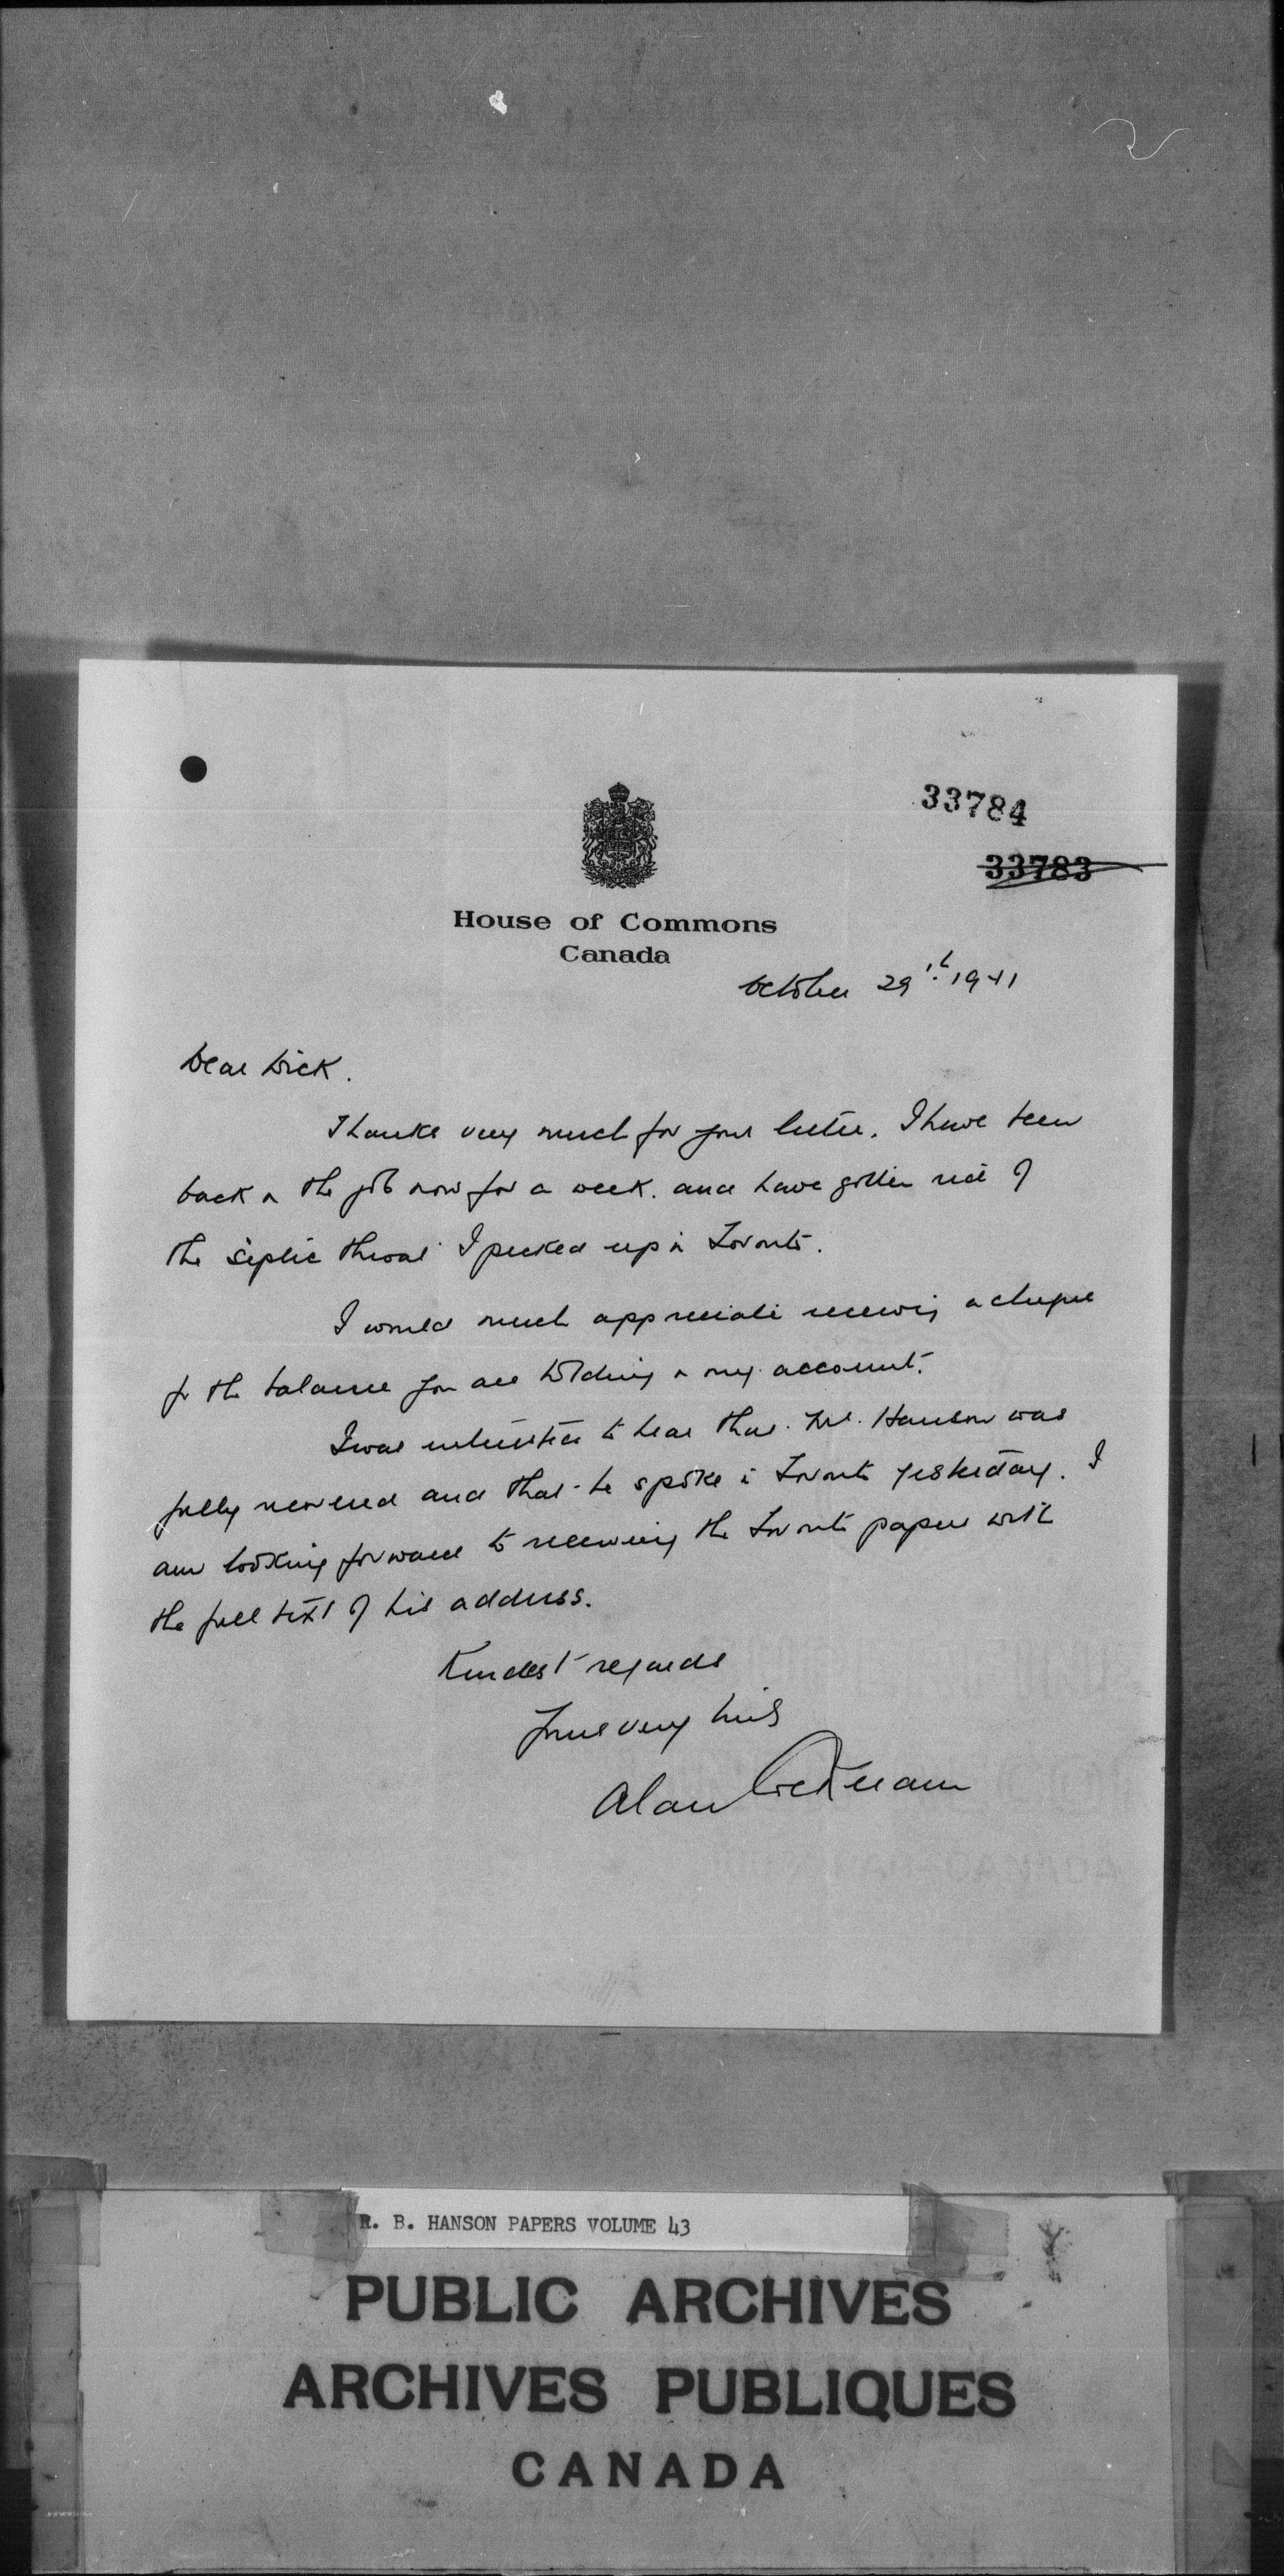 33784
33783
House of Commons
Canada
October 29th 1941
Dear Dick.
Thanks very much for your letter. I have been
back on the job now for a week. and have gotten rid of
the septic throat I picked up in Toronto.
I would much appreciate receiving a cheque
for the balance you are holding in my account.
I was interested to hear that Mr. Hanson was
fully recovered and that he spoke in Toronto yesterday. I
am looking forward to receiving the Toronto papers with
the full text of his address.
Kindest regards
Yours very truly
Alan Cockeram
R. B. HANSON PAPERS VOLUME 43
PUBLIC ARCHIVES
ARCHIVES PUBLIQUES
CANADA